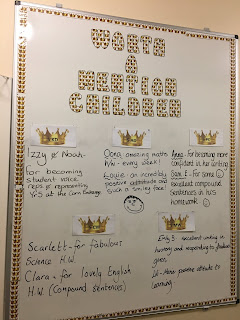 WORTH
A
MENTION
CHILDREN
Izzy & Noah-
for becoming
student voice
reps & representing
Yr5 at the Corn Exchange.
Oona- amazing maths
HW - every week!
Louie- an incredibly
positive attitude and
such a smiley face!
Anna- for becoming more
confident in her writing
Sam E - for some
excellent compound
sentences in his
homework
Scarlett- for fabulous
Science H.W
Clara- for lovely English
H.W (Compound sentences)
Emily S - excellent writing in
history and responding to feedback
given
- More positive attitude to
learning